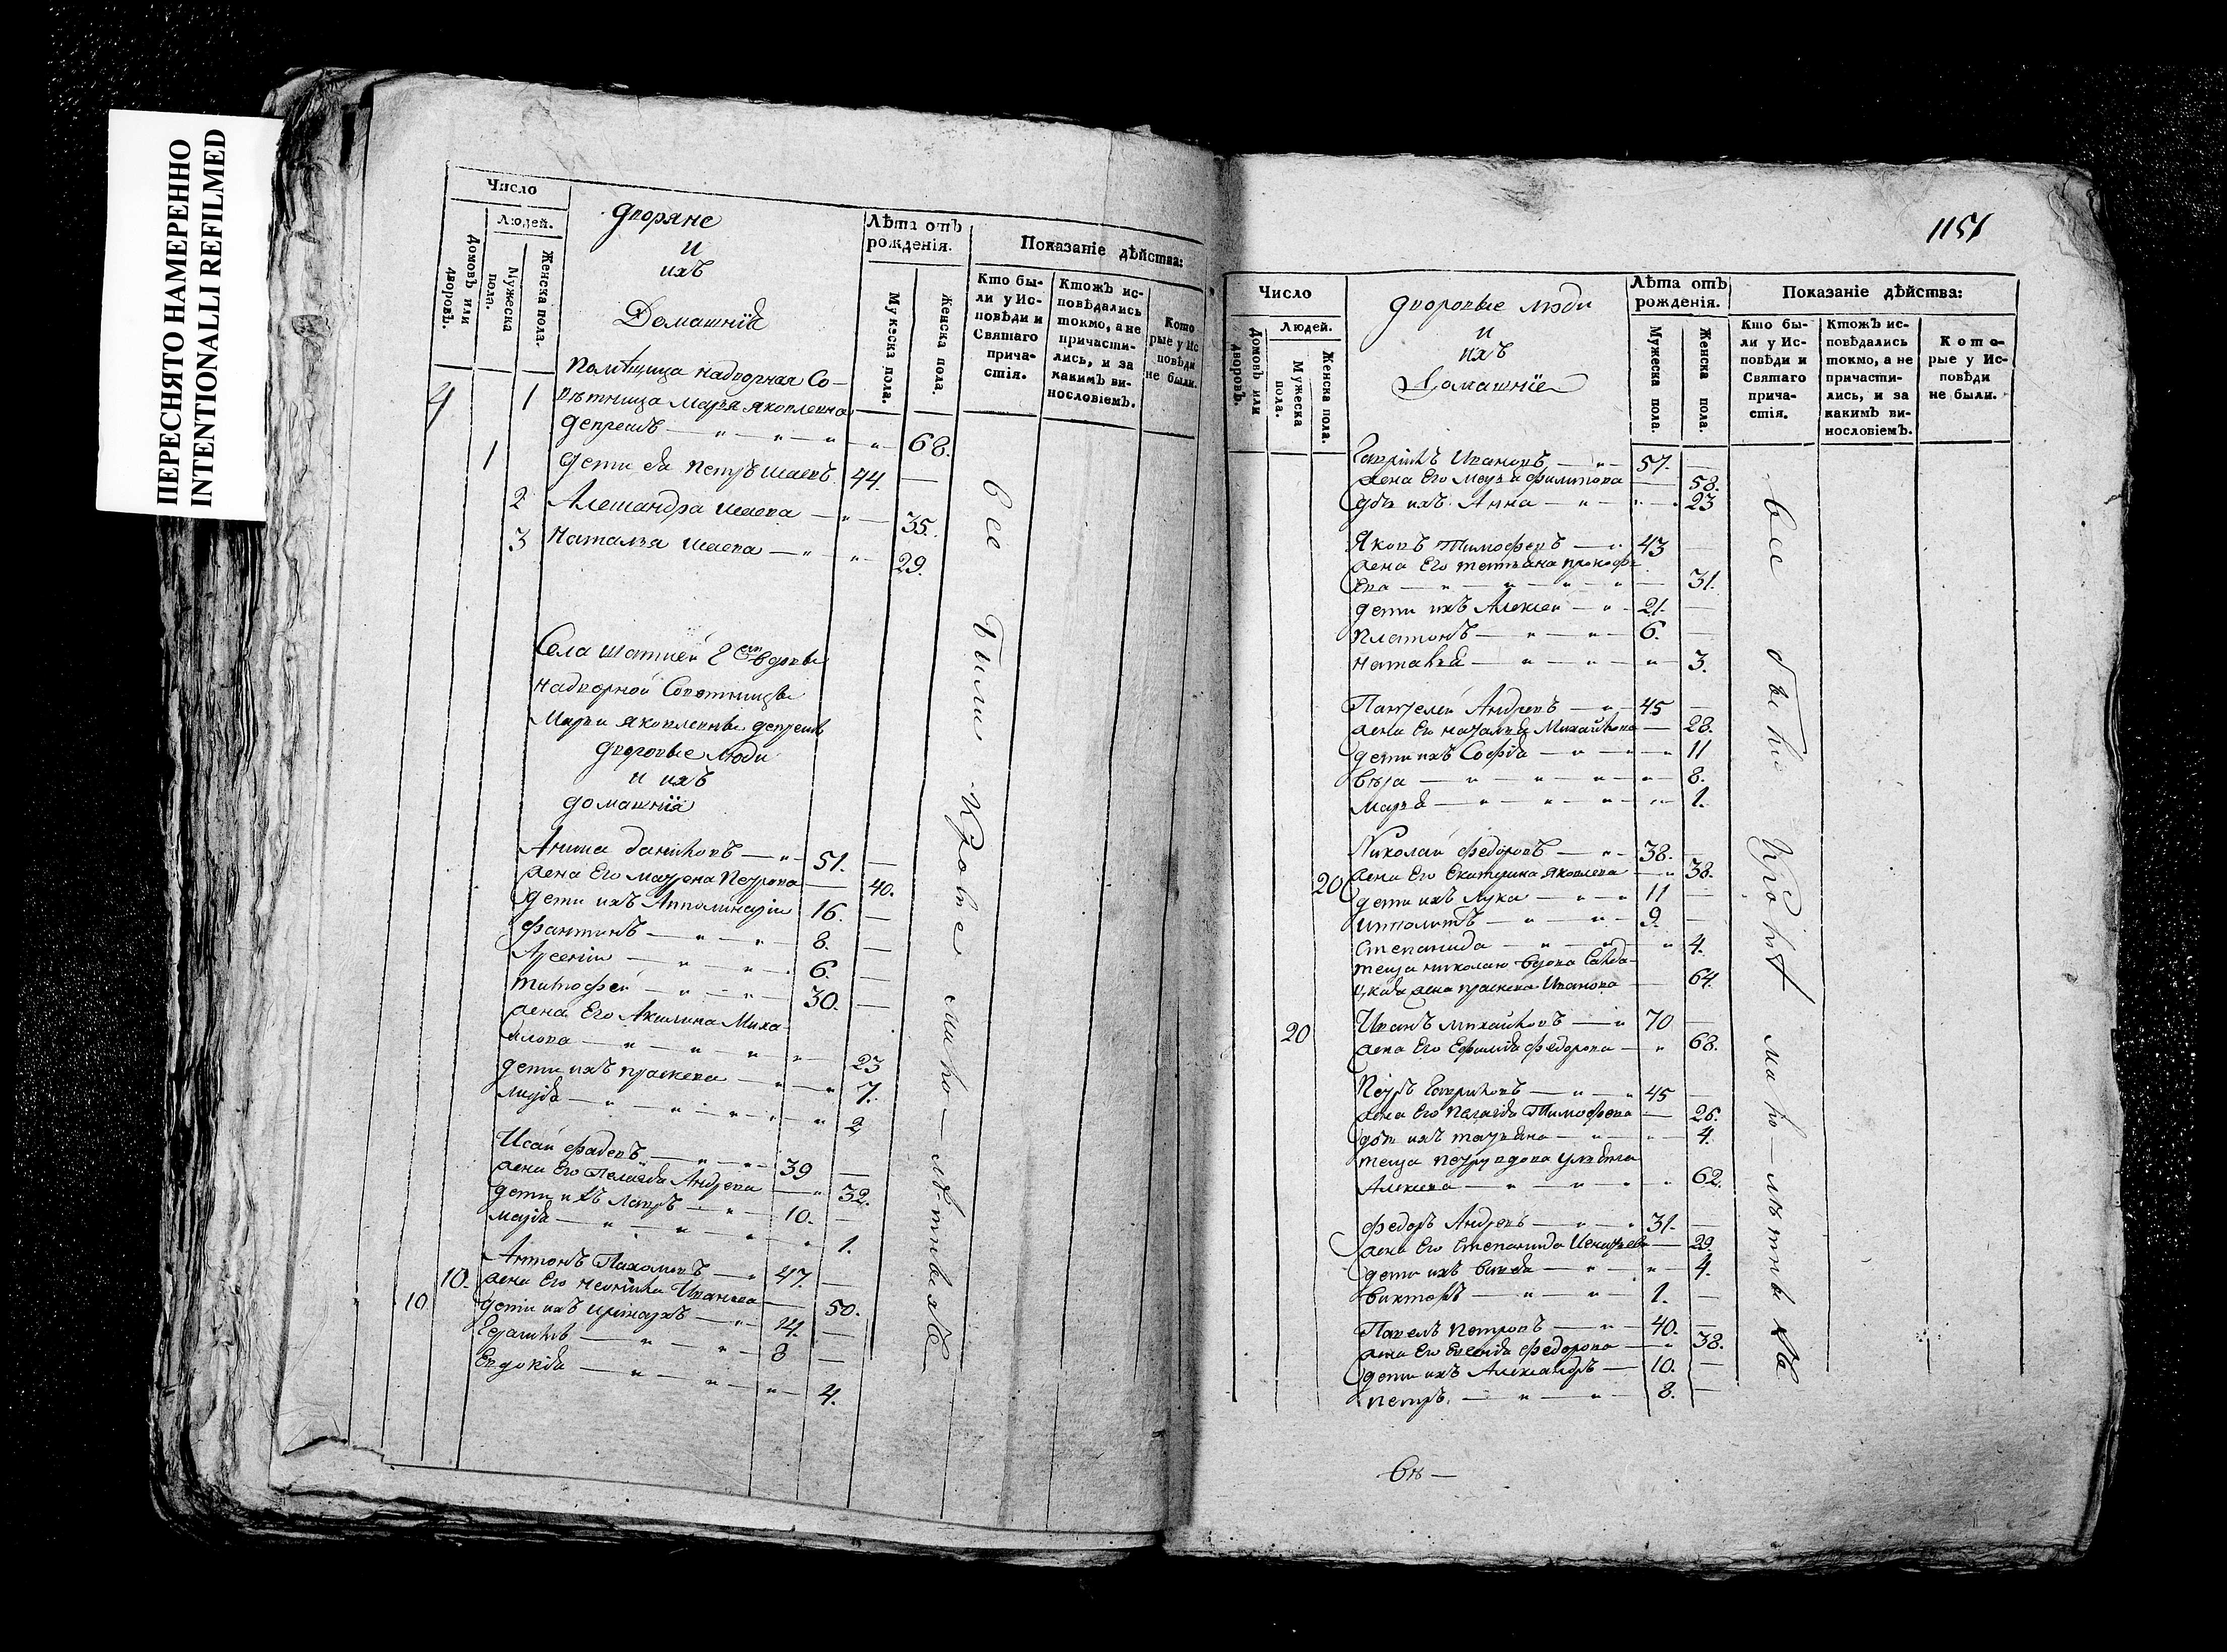 ПЕРЕСНЯТО НАМЕРЕННО
INTENTIONALLI REFILMED
Число
Людей.
Домовъ или дворовъ.
Мужеска пола.
Женска пола.
Дворяне
и
ихъ
Домашнія
Лѣта отъ рожденія.
Мужеска пола.
Женска пола.
Показаніе дѣйства:
Кто были у Исповѣди и Святаго причастія.
Ктожъ исповѣдались токмо, а не причастились, и за какимъ винословіемъ.
Которые у Исповѣди не были.
4 1 Помѣщица надворная Со-
вѣтница Марья Яковлевна
68.
1 дети ея Петръ 44. —
2 Александра 35.
3 Наталья 29.
Села 2й вдовы
надворной Советницы
Марьи Яковлевны
дворовые люди
и ихъ
домашнія
Даниловъ 51. —
жена Его Матрена Петрова — 40.
дети ихъ Апполинарій 16. —
Фантинъ 8. —
Арсеній 6. —
Тимофей 30. —
жена Его Акилина Миха-
йлова 23
дети ихъ Праскева 7.
2
Исай Фадевъ 39 —
жена Его Пелагѣя Андреева 32.
дети ихъ 10. —
Марѣя 1.
Антонъ Пахомовъ 47. —
10. жена Его Иванова — 50.
10 дети ихъ 14. —
8 —
Евдокѣя 4.
все были кроме мало-лѣтныхъ
1151
Число
Людей.
Домовъ или дворовъ.
Мужеска пола.
Женска пола.
Дворовые люди
и
ихъ
Домашніе
Лѣта отъ рожденія.
Мужеска пола.
Женска пола.
Показаніе дѣйства:
Кто были у Исповѣди и Святаго причастія.
Ктожъ исповѣдались токмо, а не причастились, и за какимъ винословіемъ.
Которые у Исповѣди не были.
Гаврилъ Ивановъ 57. —
жена Его Филипова — 58.
дочь ихъ Анна 23
Яковъ Тимофевъ 43 —
жена Его Татьяна Прокофь
ева 31.
дети ихъ Алексей 21. —
Платонъ 6. —
Наталья 3.
Пантелей Андревъ 45 —
жена Его Наталья Михайлова — 28.
дети ихъ Софѣя 11
Вѣра 8.
Марья 1.
Николай Федоровъ 38. —
20 жена Его Екатерина Яковлева 38.
дети ихъ Лука 11 —
Ипполитъ 9. —
Степанида 4.
теща Николаю вдова Салда-
цкая жена Праскева Иванова 64.
20 Иванъ Михайловъ 70 —
жена Его Ефимѣя Федорова 68.
Петръ Гавриловъ 45
жена Его Пелагѣя Тимофева — 26.
дочь ихъ Татьяна 4.
теща Петру вдова Ульяна
Алексева 62.
Федоръ Андревъ 31. —
жена Его Степанида Игнатьева — 29.
дети ихъ 4.
Викторъ 1. —
Павелъ Петровъ 40. —
жена Его Федорова 38.
дети ихъ Александръ 10. —
Петръ. 8. —
все были кроме мало-лѣтныхъ